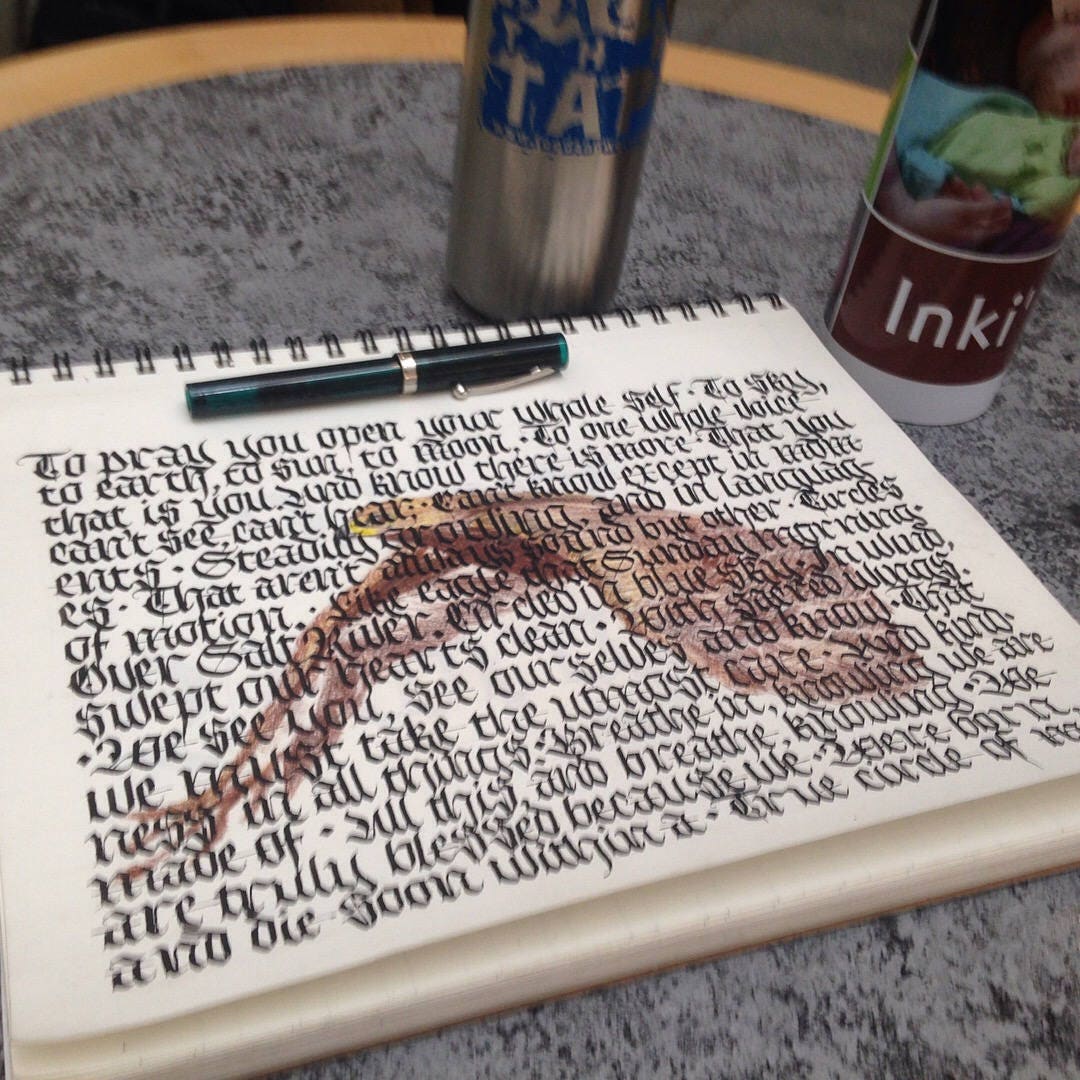 To pray you open your whole self · To sky,
to earth, to sun, to moon. · To one whole voice
that is you. And know there is more · That you
can't see can't hear; Can't know except in mom-
ents · Steadily growing, and in languag-
es · That aren't always sound but other · Circles
of motion. · Like eagle that Sunday morning.
Over Salt River. Circled in blue sky · In wind,
swept our hearts clean. · With sacred wings.
· We see you, see ourselves and know · That
we must take the utmost care · And kind
ness in all things · Breathe in knowing we are
made of · All this and breathe knowing · We
are truly blessed because we · Were born,
and die soon within a · True circle of
TAP
Inki